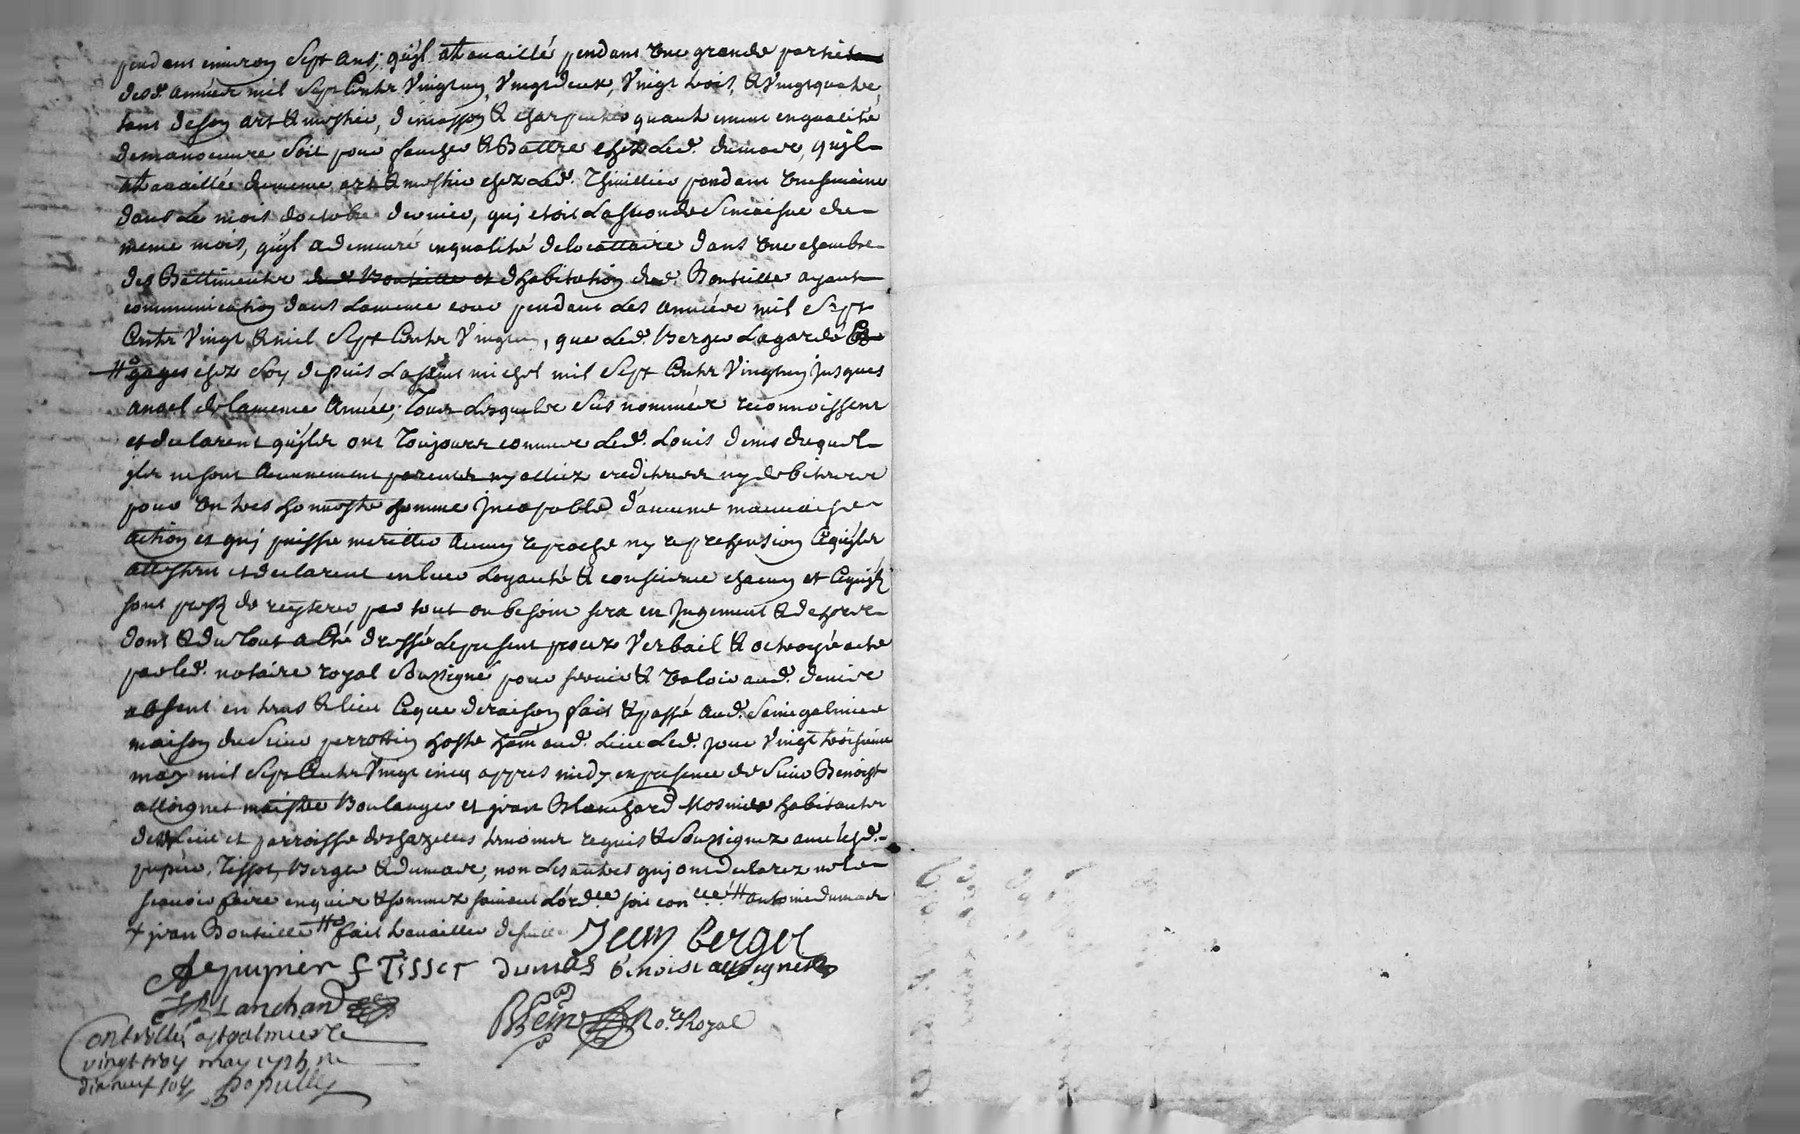 pendant environ sept ans, quil at travaillé pendant une grande partie
desd. années mil sept cents vingt un, vingt deux, vingt trois, & vingt quatre,
tant de son art & mestier, de masson & charpentier quant comme en qualité
de manoeuvre soit pour faucher & battre chez led. dumas, quil
at travaillé du meme art & mestier chez led. Thiullier pendant une semaine
dans le mois doctobre dernier, quj etoit la seconde semaisne du
meme mois, quil a demeuré en qualité de locattaire dans une chambre
des battiments ded. Bouteille et dhabitation dud. Bouteille ayant
communication dans la meme cour pendant les années mil sept
cents vingt & mil sept cents vingt un, que led. Berger la gardé
gages chez soy depuis la saint michel mil sept cents vingt un jusques
a noel de la meme année, tous lesquels sus nommés reconnoissent
et declarent quils ont toujours connus led. Louis denis duquel
ils ne sont aucunement parents ny alliez creditteurs ny debiteurs
pour un tres honneste homme jncapable daucune mauvaise
action et quj puisse meritter aucun reproche ny reprehension ce quils
attestent et declarent en leur loyauté & conscience chacun et ce quils
sont prest de reysterer par tout ou besoin sera en jugement & dehors
dont & du tout a esté dressé le present procez verbail & octroyé acte
par led. notaire royal soussigné pour servir & valoir aud. denis
absent en tems & lieu ce que de raison fait & passé aud. St galmier
maison du sieur perrottin hoste aud. lieu led. jour vingt troisieme
may mil sept cents vingt cinq appres midy en presence de sieur Benoist
alloignet maistre boulanger et jean Blanchard habitants
dud. lieu et parroisse de chazelles temoins requis & soussignez avec lesd.
pupier, Tissot, Berger & dumas, non les autres quj ont declarez ne le
scavoir faire enquis & sommez suivant lord.ce soit con.llé # antoine dumas
+ jean Bouteille # fait travailler
Jean berger
pupier f Tisset dumas benoist alloignet
J Blanchard
No.re Royal
Controllé a st galmier le
vingt troy may 1725 re
dix neuf sols